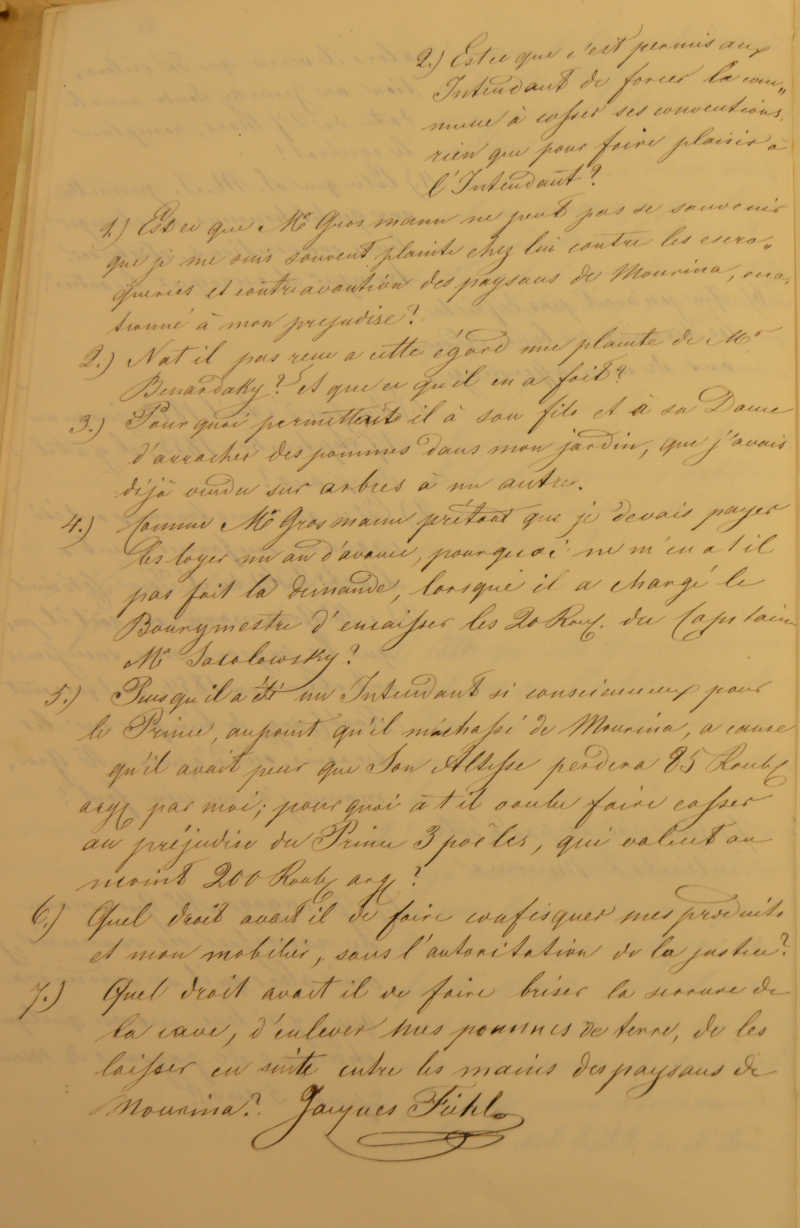 2.) Est ce que c'est permis aux
Intendant de forcer la com„
mune à casser ses conventions
rien que pour faire plaisir à
l'Intendant?
1.) Est ce que Mr Grosmann ne peut pas se souvenir
que je me suis souvent plainte chez lui contre les escro„
queries et contreavantion des paysans de Mourina,
tionné à mon prejudise?
2.) N'at il pas recu a cette égard une plainte de Mr
Benardaky? et que ce qu'il en a fait?
3.) Pourquoi permettait il à son fils et à sa Dame
d'arracher des pommes dans mon jardin, que j'avais
déjà vendu sur arbres à un autre.
4.) Comme Mr Grosmann prétent que je devais payer
les loyer un an d'avance, pourquoi ne m'en a t il
pas fait la demande, lorsque il a chargé le
Bourgmestre d'encaisser les 20 Roub. du Capitain
Mr Sacolowsky?
5.) Puisqu'il a été un Intendant si consciencieux pour
le Prince, au point qu'il m'a chassé de Mourina, a cause
qu'il avait peur que Son Altesse perdera 85 Roub
arg par moi; pourquoi a t il voulu faire casser
au préjudise du Prince 3 poêles, qui valent au
moint 200 Roub arg?
6.) Quel droit avait il de faire confisquer mes produits
et mon mobilier, sans l'autoritation de la justice?
7.) Quel droit avait il de faire briser la serrure de
la cave, d'enlever mes pommes de terre, de les
laisser en suite entre les mains des paysans de
Mourina? Jacques Fühl